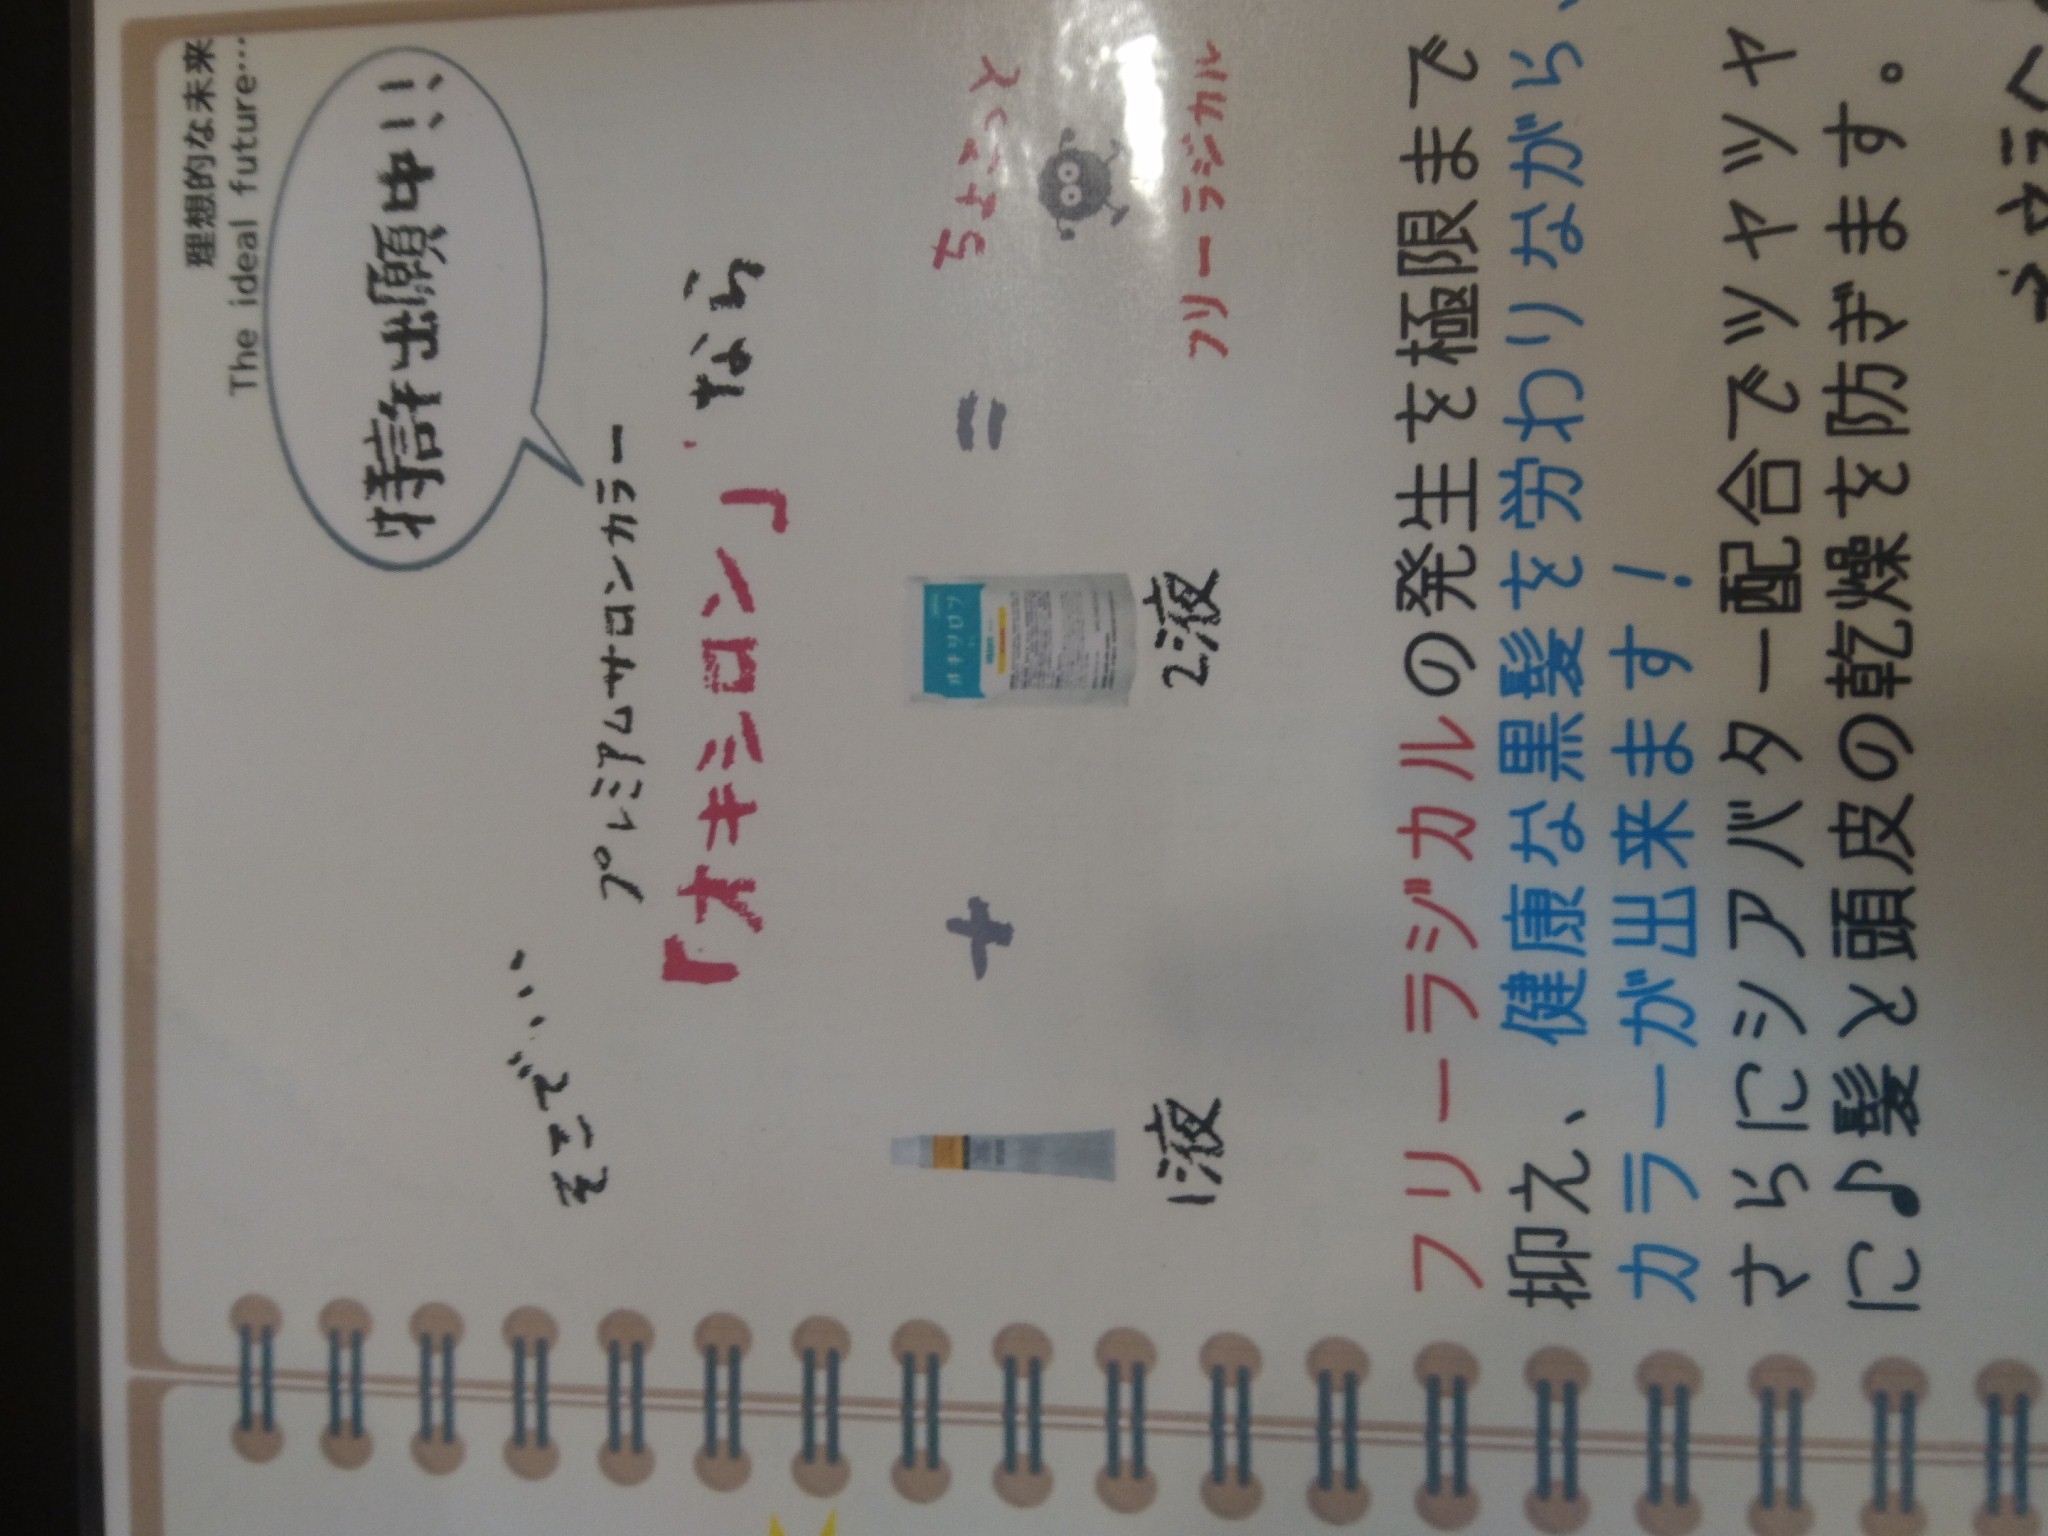 理想的な未来
The ideal future…
特許出願中!!
そこで…
プレミアムサロンカラー
「オキシロン」なら
ちょこっと
+
=
オキシロン
1液
2液
フリーラジカル
フリーラジカルの発生を極限まで
抑え、健康な黒髪を労わりながら、
カラーが出来ます!
さらにシアバター配合でツヤツヤ
に♪髪と頭皮の乾燥を防ぎます。